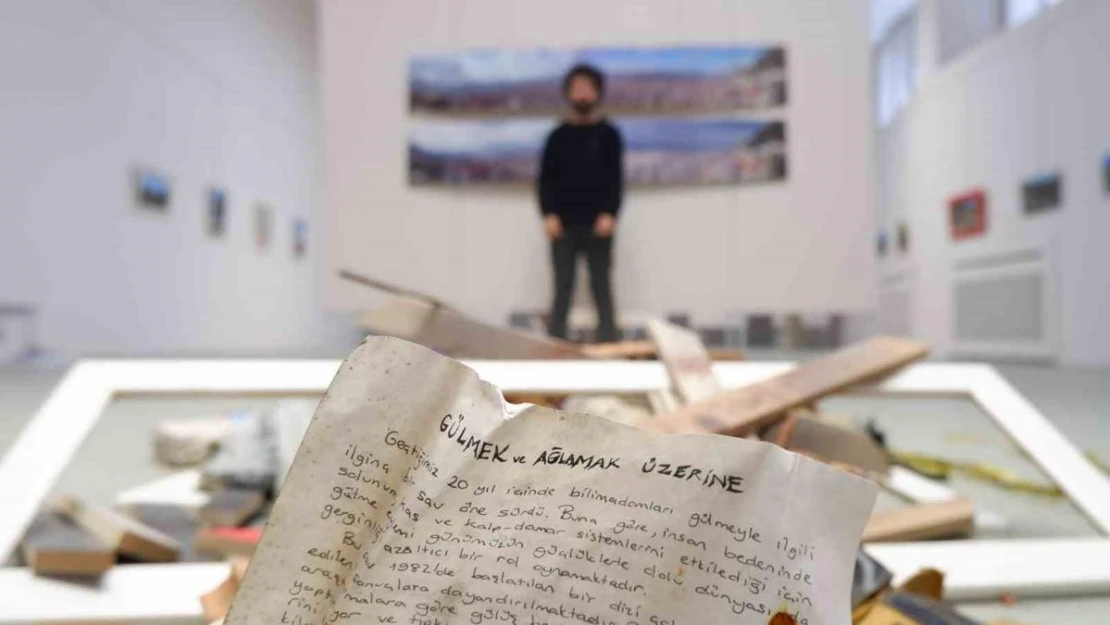 GÜLMEK ve AĞLAMAK ÜZERİNE
Geçtiğimiz 20 yıl içinde bilimadamları gülmeyle ilgili
ilginç bir sav öne sürdü. Buna göre, insan bedeninde
solunum, kas ve kalp-damar sistemlerini etkilediği için
gülme günümüzün güçlüklerle dolu dünyasında
gerginliği azaltıcı bir rol oynamaktadır.
Bu 1982'de başlatılan bir dizi
dayandırılmaktadır.
malara göre gülüş
ve